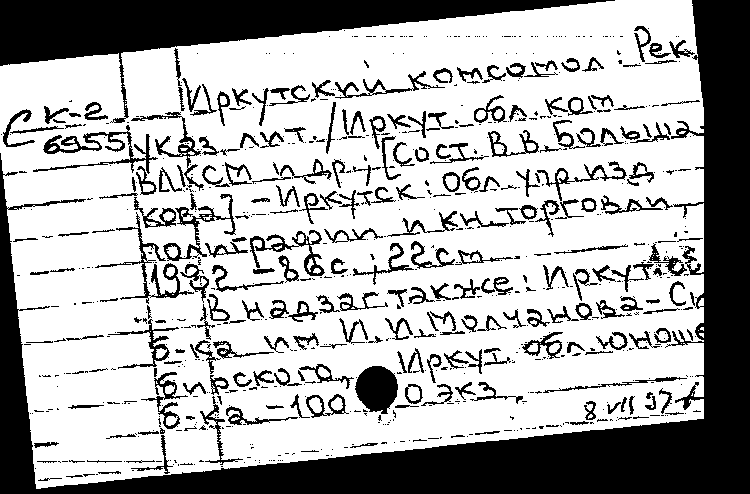 Иркутский комсомол: Рек.
С К-2
6955
указ. лит. / Иркут. обл. ком.
ВЛКСМ и др.; [Сост. В.В. Больша-
кова]. - Иркутск: Обл. упр. изд.
полиграфии и кн. торговли,
1982. - 86 с.; 22 см.
В надзаг. также: Иркут. об
б-ка им И.И. Молчанова-Си
бирского, Иркут. обл. юноше
б-ка. - 100 0 экз.
8 VII 97